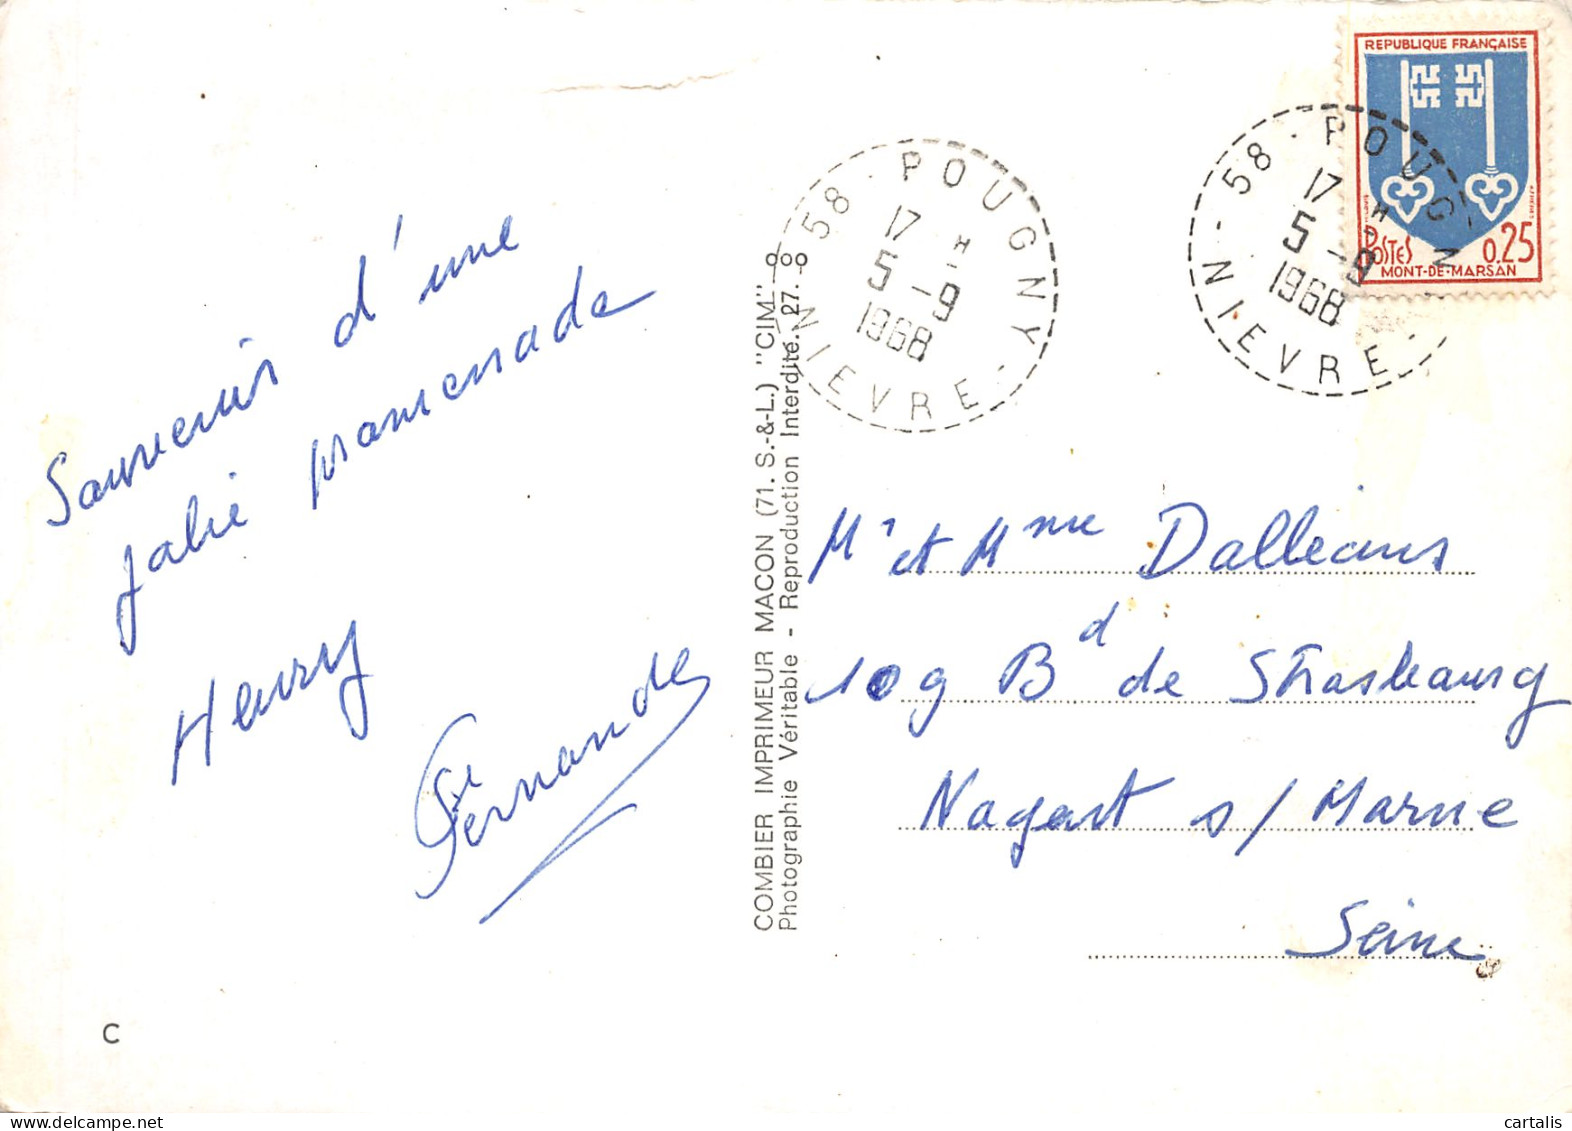 Souvenir d'une
jolie promenade
Henry
Fernande
COMBIER IMPRIMEUR MACON (71. S.-&-L.) "CIM"
Photographie Véritable - Reproduction Interdite. 27. - 8
58 - POUGNY - NIEVRE -
17 H
5 - 9
1968
58 - POUGNY - NIEVRE -
17 H
5 - 9
1968
REPUBLIQUE FRANÇAISE
POSTES 0,25
MONT-DE-MARSAN
Mr et Mme
109 Bd de Strasbourg
Nogent s/ Marne
Seine
C
cartalis